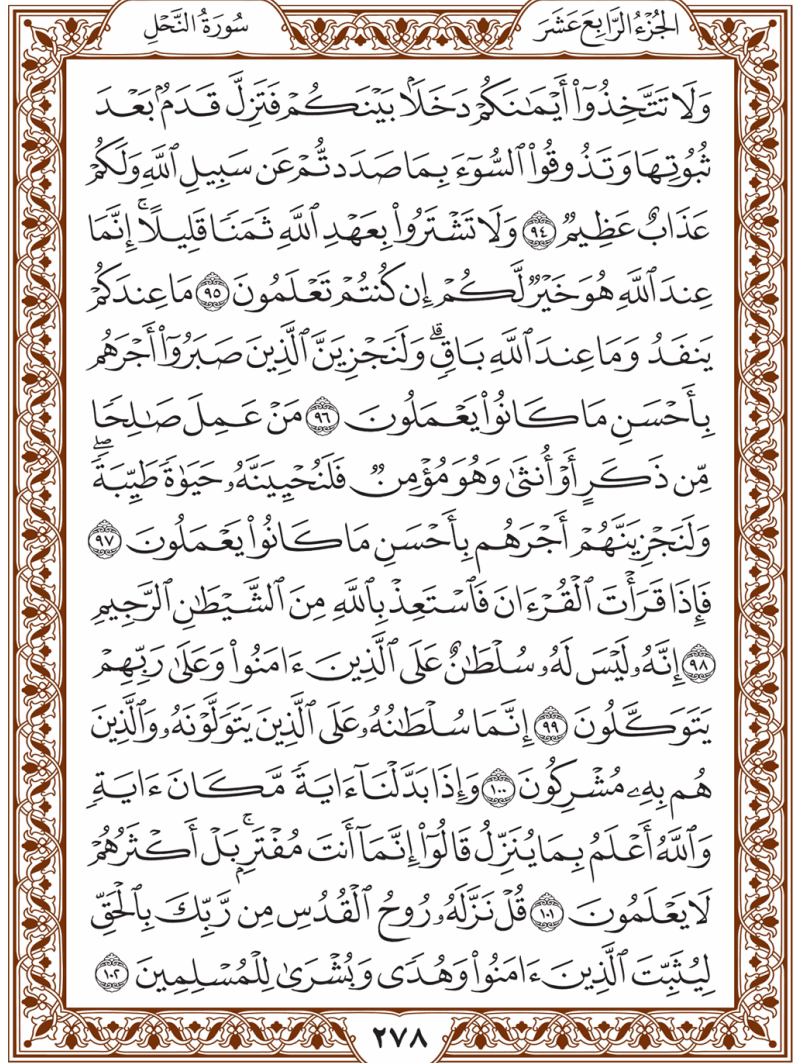 الجُزْءُ الرَّابِعَ عَشَرَ
سُورَةُ النَّحْلِ
وَلَا تَتَّخِذُوٓا۟ أَيْمَـٰنَكُمْ دَخَلًۢا بَيْنَكُمْ فَتَزِلَّ قَدَمٌۢ بَعْدَ
ثُبُوتِهَا وَتَذُوقُوا۟ ٱلسُّوٓءَ بِمَا صَدَدتُّمْ عَن سَبِيلِ ٱللَّهِ وَلَكُمْ
عَذَابٌ عَظِيمٌ ٩٤ وَلَا تَشْتَرُوا۟ بِعَهْدِ ٱللَّهِ ثَمَنًا قَلِيلًا ۚ إِنَّمَا
عِندَ ٱللَّهِ هُوَ خَيْرٌ لَّكُمْ إِن كُنتُمْ تَعْلَمُونَ ٩٥ مَا عِندَكُمْ
يَنفَدُ وَمَا عِندَ ٱللَّهِ بَاقٍ ۗ وَلَنَجْزِيَنَّ ٱلَّذِينَ صَبَرُوٓا۟ أَجْرَهُم
بِأَحْسَنِ مَا كَانُوا۟ يَعْمَلُونَ ٩٦ مَنْ عَمِلَ صَـٰلِحًا
مِّن ذَكَرٍ أَوْ أُنثَىٰ وَهُوَ مُؤْمِنٌ فَلَنُحْيِيَنَّهُۥ حَيَوٰةً طَيِّبَةً ۖ
وَلَنَجْزِيَنَّهُمْ أَجْرَهُم بِأَحْسَنِ مَا كَانُوا۟ يَعْمَلُونَ ٩٧
فَإِذَا قَرَأْتَ ٱلْقُرْءَانَ فَٱسْتَعِذْ بِٱللَّهِ مِنَ ٱلشَّيْطَـٰنِ ٱلرَّجِيمِ
٩٨ إِنَّهُۥ لَيْسَ لَهُۥ سُلْطَـٰنٌ عَلَى ٱلَّذِينَ ءَامَنُوا۟ وَعَلَىٰ رَبِّهِمْ
يَتَوَكَّلُونَ ٩٩ إِنَّمَا سُلْطَـٰنُهُۥ عَلَى ٱلَّذِينَ يَتَوَلَّوْنَهُۥ وَٱلَّذِينَ
هُم بِهِۦ مُشْرِكُونَ ١٠٠ وَإِذَا بَدَّلْنَآ ءَايَةً مَّكَانَ ءَايَةٍ
وَٱللَّهُ أَعْلَمُ بِمَا يُنَزِّلُ قَالُوٓا۟ إِنَّمَآ أَنتَ مُفْتَرٍۭ ۚ بَلْ أَكْثَرُهُمْ
لَا يَعْلَمُونَ ١٠١ قُلْ نَزَّلَهُۥ رُوحُ ٱلْقُدُسِ مِن رَّبِّكَ بِٱلْحَقِّ
لِيُثَبِّتَ ٱلَّذِينَ ءَامَنُوا۟ وَهُدًى وَبُشْرَىٰ لِلْمُسْلِمِينَ ١٠٢
٢٧٨